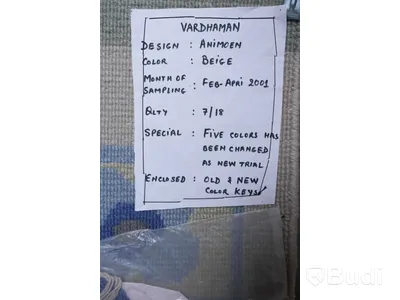 VARDHAMAN
DESIGN : ANIMOEN
COLOR : BEIGE
MONTH OF SAMPLING : FEB-APRI 2001
QLTY : 7/18
SPECIAL : FIVE COLORS HAS
BEEN CHANGED
AS NEW TRIAL
ENCLOSED : OLD & NEW
COLOR KEYS
Budli